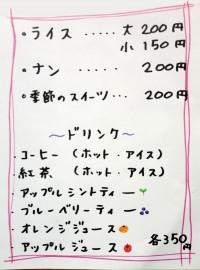 ・ライス ..... 大 200円
小 150円
・ナン ..... 200円
・季節のスイーツ... 200円
～ドリンク～
・コーヒー (ホット・アイス)
・紅茶 (ホット・アイス)
・アップルミントティー
・ブルーベリーティー
・オレンジジュース
・アップルジュース 各350円